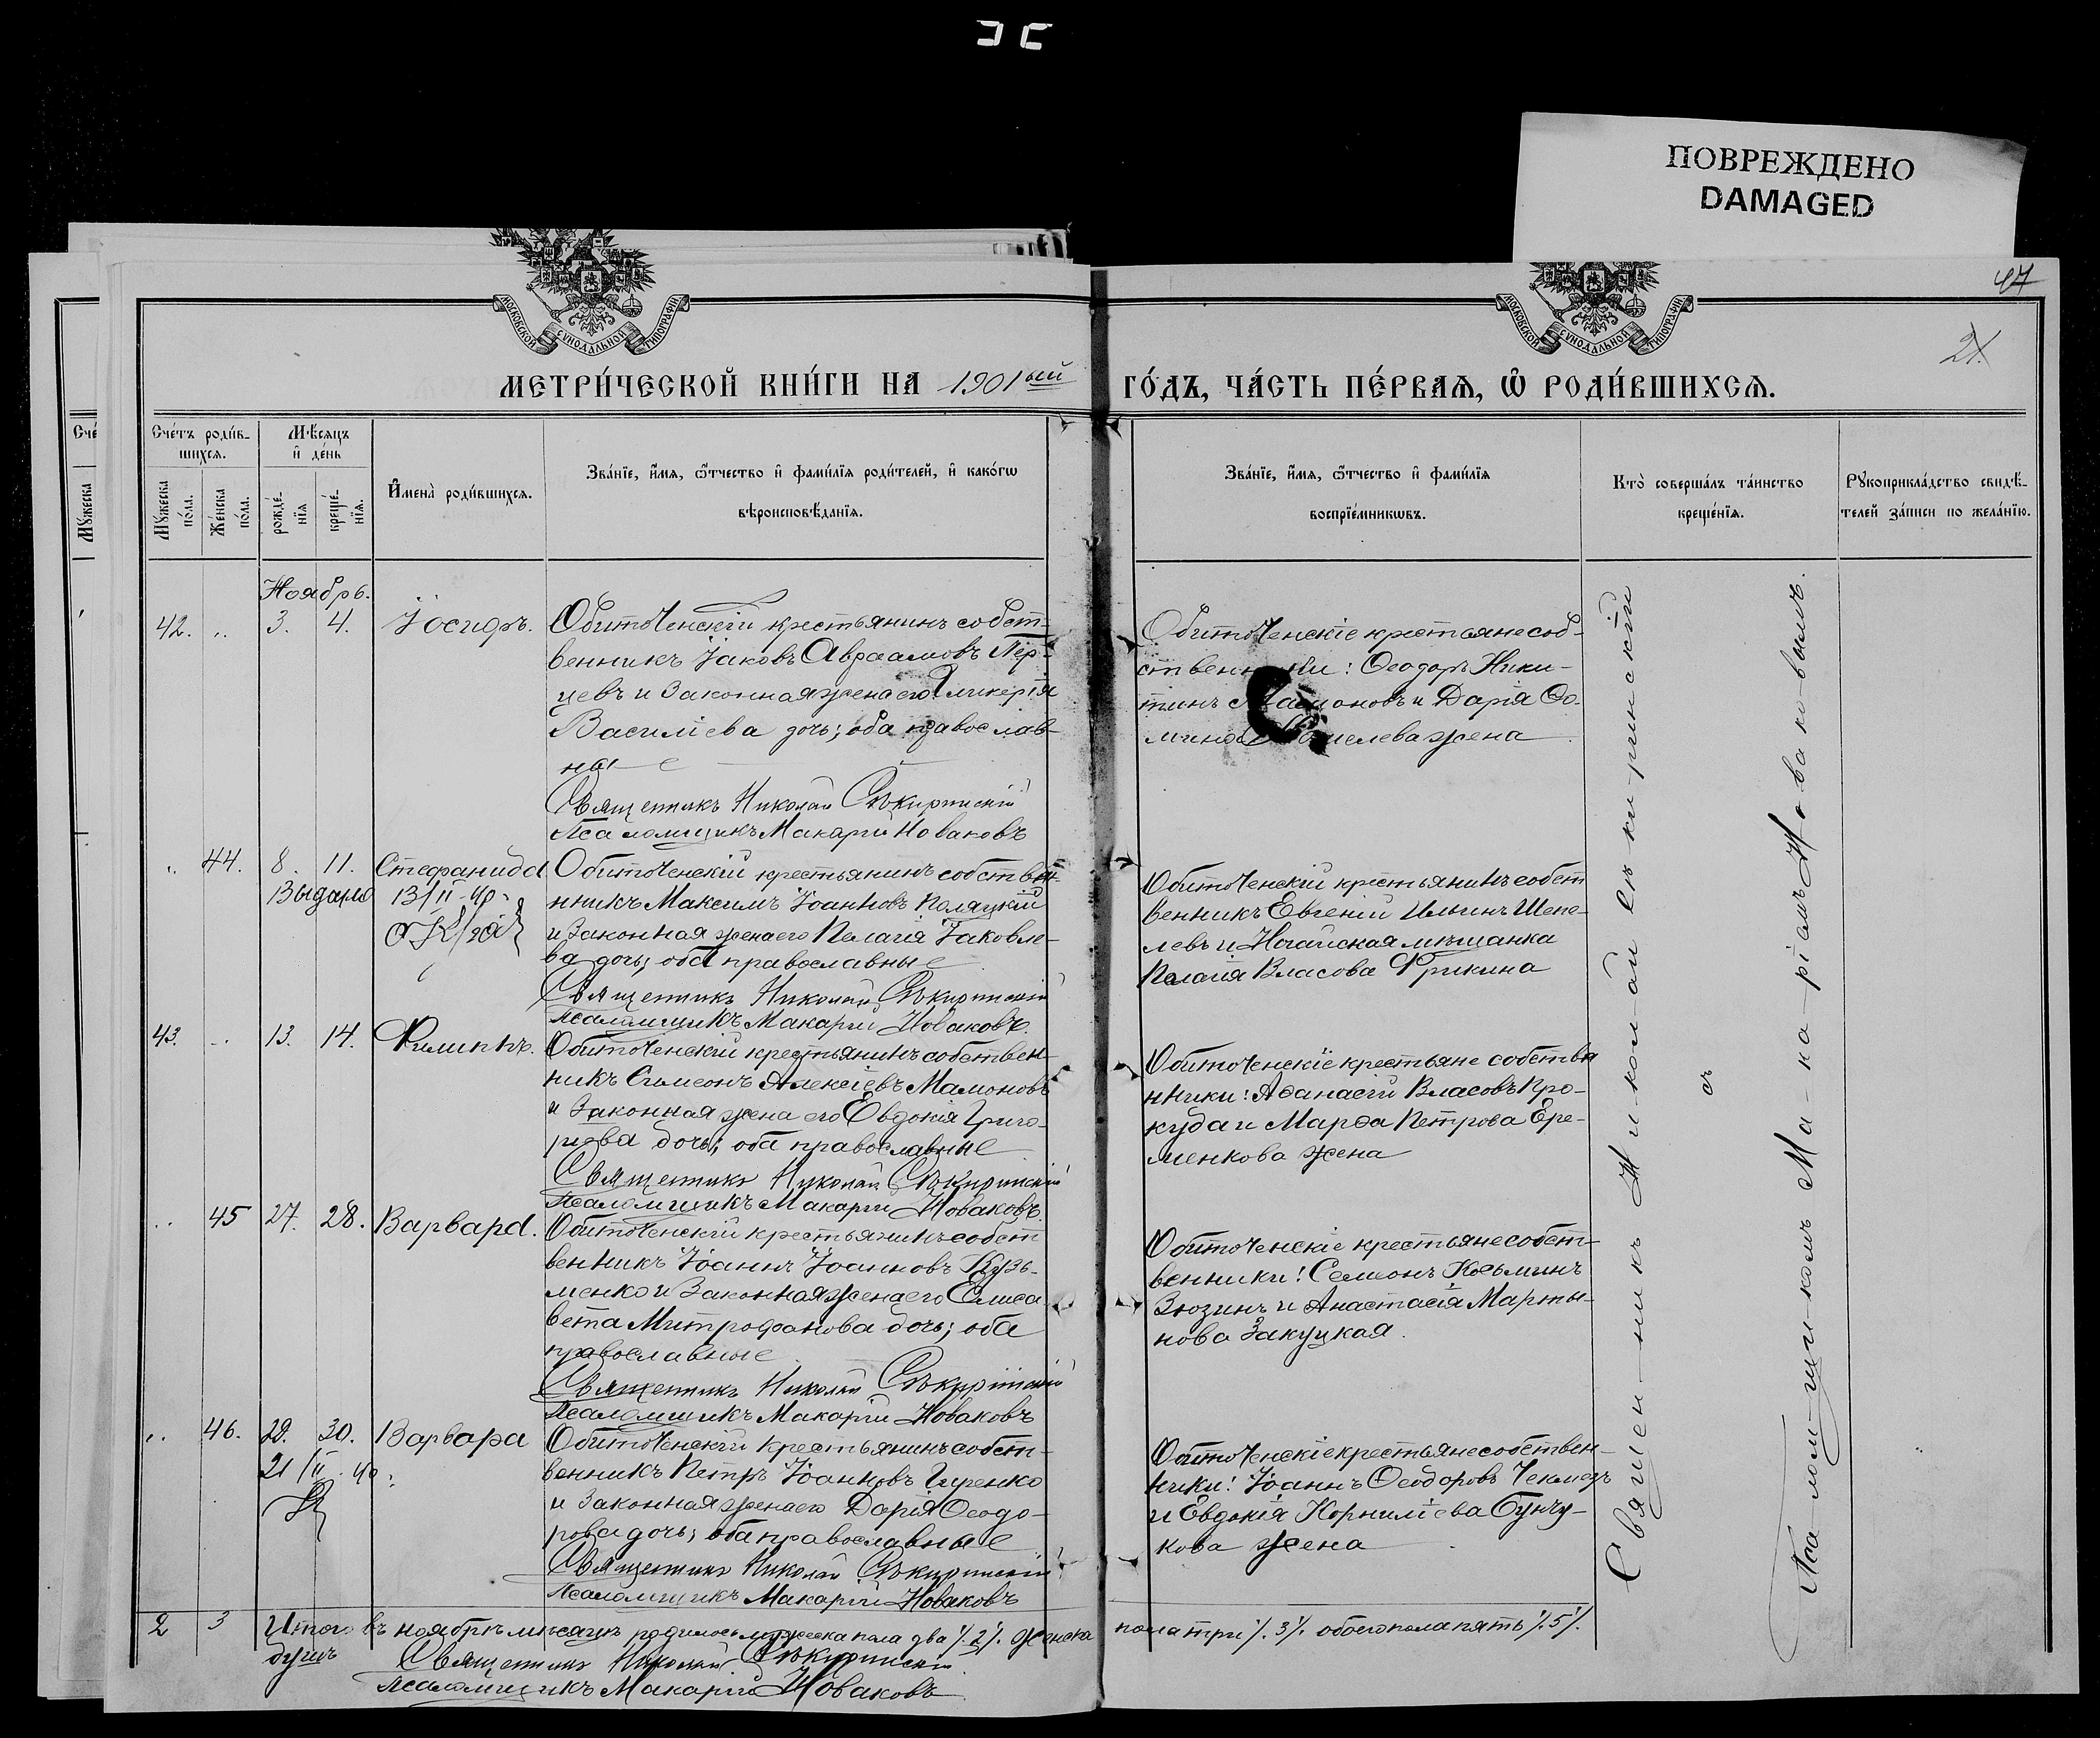 ПОВРЕЖДЕНО
DAMAGED
47
21.
МОСКОВСКОЙ СУНОДАЛЬНОЙ ТИПОГРАФІИ
МОСКОВСКОЙ СУНОДАЛЬНОЙ ТИПОГРАФІИ
МЕТРИ́ЧЕСКОЙ КНИ́ГИ НА 1901ый
ГО́ДЪ, ЧА́СТЬ ПЕ́РВАѦ, Ѡ҆ РОДИ́ВШИХСѦ.
Сче́
Мꙋжеска
Сче́тъ роди́в-
шихсѧ.
Мꙋ́жеска по́ла.
Же́нска по́ла.
Мѣ́сѧцъ
и҆ де́нь
рожде́-
нїѧ
креще́-
нїѧ.
И҆мена̀ роди́вшихсѧ.
Зва́нїе, и҆́мѧ, ѻ҆́тчество и҆ фами́лїѧ роди́телей, и҆ како́гѡ
вѣроисповѣ́данїѧ.
Зва́нїе, и҆́мѧ, ѻ҆́тчество и҆ фами́лїѧ
воспрїе́мникѡвъ.
Кто̀ соверша́лъ та́инство
креще́нїѧ.
Рꙋкоприкла́дство свидѣ́-
телей за́писи по жела́нїю.
Ноябрь.
42. „ 3. 4. Іосифъ.
Обиточенскій крестьянинъ собст-
венникъ Іаковъ Авраамовъ Пер-
цевъ и законная жена его Гликерія
Василіева дочь; оба православ-
ные
Священникъ Николай Сѣкиринскій
Псаломщикъ Макарій Новаковъ
Обиточенскіе крестьяне соб-
ственники: Ѳеодоръ Ники-
тинъ Мамоновъ и Дарія Ѳо-
жена
„ 44. 8. 11. Стефанида
Выдано 13/II-40.
Обиточенскій крестьянинъ собстве-
нникъ Максимъ Іоанновъ Поляцкій
и законная жена его Пелагія Іаковле-
ва дочь; оба православные
Священникъ Николай Сѣкиринскій
Псаломщикъ Макарій Новаковъ.
Обиточенскій крестьянинъ собст
венникъ Евгеній Ильинъ Шепе-
левъ и Ногайская мѣщанка
Пелагія Власова Фрикина
43. „ 13. 14. Филиппъ.
Обиточенскій крестьянинъ собствен-
никъ Симеонъ Алексіевъ Мамоновъ
и законная жена его Евдокія Григо-
ріева дочь; оба православные
Священникъ Николай Сѣкиринскій
Псаломщикъ Макарій Новаковъ.
Обиточенскіе крестьяне собстве
нники: Аѳанасій Власовъ Про-
куда и Марѳа Петрова Ере-
менкова жена
„ 45 27. 28. Варвара.
Обиточенскій крестьянинъ собст
венникъ Іоаннъ Іоанновъ Кузь-
менко и законная жена его Елиса-
вета Митрофанова дочь; оба
православные
Священникъ Николай Сѣкиринскій
Псаломщикъ Макарій Новаковъ
Обиточенскіе крестьяне собст-
венники: Симеонъ Косьминъ
Вюзинъ и Анастасія Марты-
нова Закуцкая.
„ 46. 29. 30. Варвара
21/II-40.
Обиточенскій крестьянинъ собст-
венникъ Петръ Іоанновъ Гиренко
и законная жена его Дарія Ѳеодо-
рова дочь; оба православные
Священникъ Николай Сѣкиринскій
Псаломщикъ Макарій Новаковъ
Обиточенскіе крестьяне собствен-
ники: Іоаннъ Ѳеодоровъ
и Евдокія Корниліева Бунчу-
кова жена
Священникъ Николай Сѣкиринскій
съ
Псаломщикомъ Макаріемъ Новаковымъ.
2 3 Итого въ ноябрѣ мѣсяцѣ родилось мужеска пола два /.2/. женска пола три /.3/. обоего пола пять /.5/.
душъ
Священникъ Николай Сѣкиринскій
Псаломщикъ Макарій Новаковъ